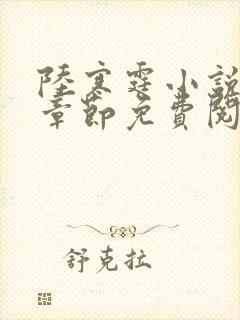 陸寒霆小說
章節免費閱
舒克拉